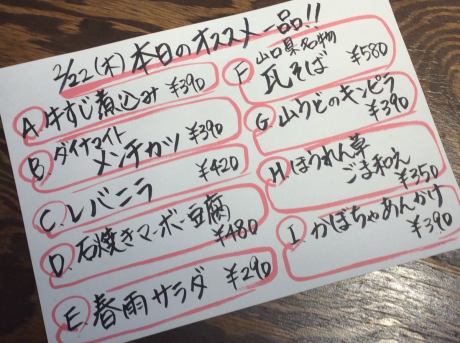 2/22(木)本日のオススメ一品!!
A.牛すじ煮込み ¥390
B.ダイナマイト
メンチカツ ¥390
C.レバニラ ¥420
D.石焼きマーボー豆腐
¥480
E.春雨サラダ ¥290
F.山口県名物
瓦そば ¥580
G.山うどのキンピラ
¥390
H.ほうれん草
ごま和え
¥350
I.かぼちゃあんかけ
¥390